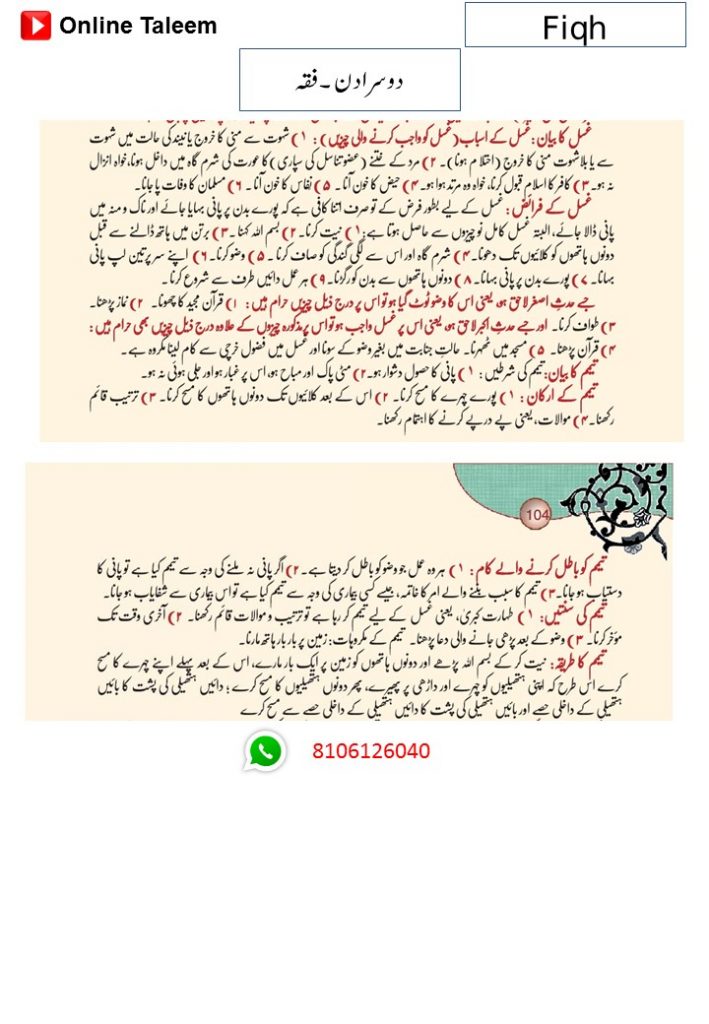 Online Taleem
Fiqh
دوسرا دن ۔ فقہ
غسل کا بیان: غسل کے اسباب (غسل کو واجب کرنے والی چیزیں) : ۱) شہوت سے منی کا خروج یا نیند کی حالت میں شہوت
سے یا بلا شہوت منی کا خروج (احتلام ہونا)۔ ۲) مرد کے ختنے (عضو تناسل کی سپاری) کا عورت کی شرم گاہ میں داخل ہونا، خواہ انزال
نہ ہو۔ ۳) کافر کا اسلام قبول کرنا، خواہ وہ مرتد ہوا ہو۔ ۴) حیض کا خون آنا۔ ۵) نفاس کا خون آنا۔ ۶) مسلمان کا وفات پا جانا۔
غسل کے فرائض: غسل کے لیے بطور فرض کے تو صرف اتنا کافی ہے کہ پورے بدن پر پانی بہایا جائے اور ناک و منہ میں
پانی ڈالا جائے، البتہ غسل کامل نو چیزوں سے حاصل ہوتا ہے: ۱) نیت کرنا۔ ۲) بسم اللہ کہنا۔ ۳) برتن میں ہاتھ ڈالنے سے قبل
دونوں ہاتھوں کو کلائیوں تک دھونا۔ ۴) شرم گاہ اور اس سے لگی گندگی کو صاف کرنا۔ ۵) وضو کرنا۔ ۶) اپنے سر پر تین لپ پانی
بہانا۔ ۷) پورے بدن پر پانی بہانا۔ ۸) دونوں ہاتھوں سے بدن کو رگڑنا۔ ۹) ہر عمل دائیں طرف سے شروع کرنا۔
جسے حدثِ اصغر لاحق ہو، یعنی اس کا وضو ٹوٹ گیا ہو تو اس پر درج ذیل چیزیں حرام ہیں : ۱) قرآن مجید کا چھونا۔ ۲) نماز پڑھنا۔
۳) طواف کرنا۔ اور جسے حدثِ اکبر لاحق ہو، یعنی اس پر غسل واجب ہو تو اس پر مذکورہ چیزوں کے علاوہ درج ذیل چیزیں بھی حرام ہیں :
۴) قرآن پڑھنا۔ ۵) مسجد میں ٹھہرنا۔ حالتِ جنابت میں بغیر وضو کے سونا اور غسل میں فضول خرچی سے کام لینا مکروہ ہے۔
تیمم کا بیان: تیمم کی شرطیں : ۱) پانی کا حصول دشوار ہو۔ ۲) مٹی پاک اور مباح ہو، اس پر غبار ہو اور جلی ہوئی نہ ہو۔
تیمم کے ارکان : ۱) پورے چہرے کا مسح کرنا۔ ۲) اس کے بعد کلائیوں تک دونوں ہاتھوں کا مسح کرنا۔ ۳) ترتیب قائم
رکھنا۔ ۴) موالات، یعنی پے درپے کرنے کا اہتمام رکھنا۔
104
تیمم کو باطل کرنے والے کام : ۱) ہر وہ عمل جو وضو کو باطل کر دیتا ہے۔ ۲) اگر پانی نہ ملنے کی وجہ سے تیمم کیا ہے تو پانی کا
دستیاب ہو جانا۔ ۳) تیمم کا سبب بننے والے امر کا خاتمہ، جیسے کسی بیماری کی وجہ سے تیمم کیا ہے تو اس بیماری سے شفایاب ہو جانا۔
تیمم کی سنتیں: ۱) طہارت کبریٰ، یعنی غسل کے لیے تیمم کر رہا ہے تو ترتیب و موالات قائم رکھنا۔ ۲) آخری وقت تک
مؤخر کرنا۔ ۳) وضو کے بعد پڑھی جانے والی دعا پڑھنا۔ تیمم کے مکروہات: زمین پر بار بار ہاتھ مارنا۔
تیمم کا طریقہ: نیت کر کے بسم اللہ پڑھے اور دونوں ہاتھوں کو زمین پر ایک بار مارے، اس کے بعد پہلے اپنے چہرے کا مسح
کرے اس طرح کہ اپنی ہتھیلیوں کو چہرے اور داڑھی پر پھیرے، پھر دونوں ہتھیلیوں کا مسح کرے؛ دائیں ہتھیلی کی پشت کا بائیں
ہتھیلی کے داخلی حصے اور بائیں ہتھیلی کی پشت کا دائیں ہتھیلی کے داخلی حصے سے مسح کرے
8106126040